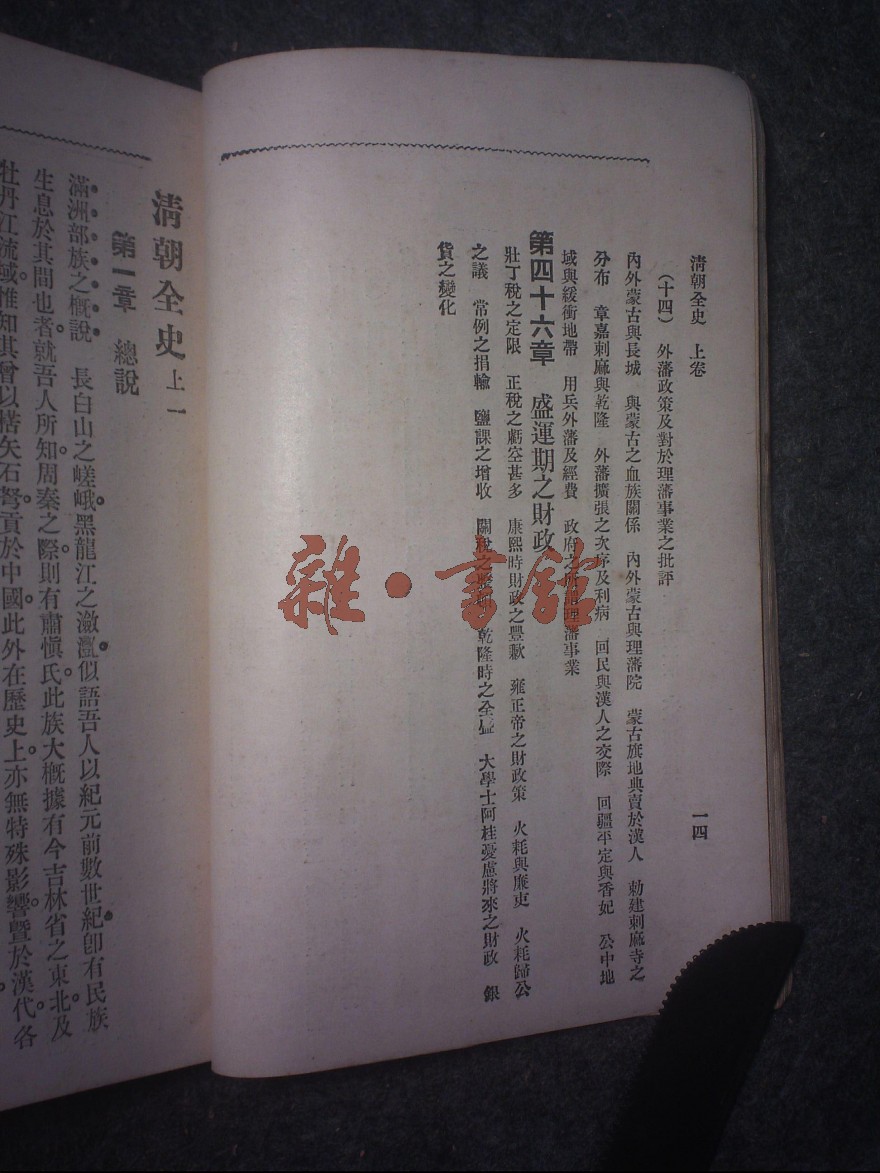 清朝全史　上卷　一四
（十四）　外藩政策及對於理藩事業之批評
內外蒙古與長城　與蒙古之血族關係　內外蒙古與理藩院　蒙古旗地典賣於漢人　勅建剌麻寺之
分布　章嘉剌麻與乾隆　外藩擴張之次序及利病　回民與漢人之交際　回疆平定與香妃　公中地
域與緩衝地帶　用兵外藩及經費　政府之所謂理藩事業
第四十六章　盛運期之財政
壯丁稅之定限　正稅之虧空甚多　康熙時財政之豐歉　雍正帝之財政策　火耗與廉吏　火耗歸公
之議　常例之捐輸　鹽課之增收　關稅之　乾隆時之全盛　大學士阿桂憂慮將來之財政　銀
貨之變化
清朝全史上一
第一章　總說
滿洲部族之概說　長白山之嵯峨黑龍江之瀲灩似語吾人以紀元前數世紀卽有民族
生息於其間也者就吾人所知周秦之際則有肅愼氏此族大槪據有今吉林省之東北及
牡丹江流域惟知其曾以楛矢石砮貢於中國此外在歷史上亦無特殊影響曁於漢代各
雜·書館